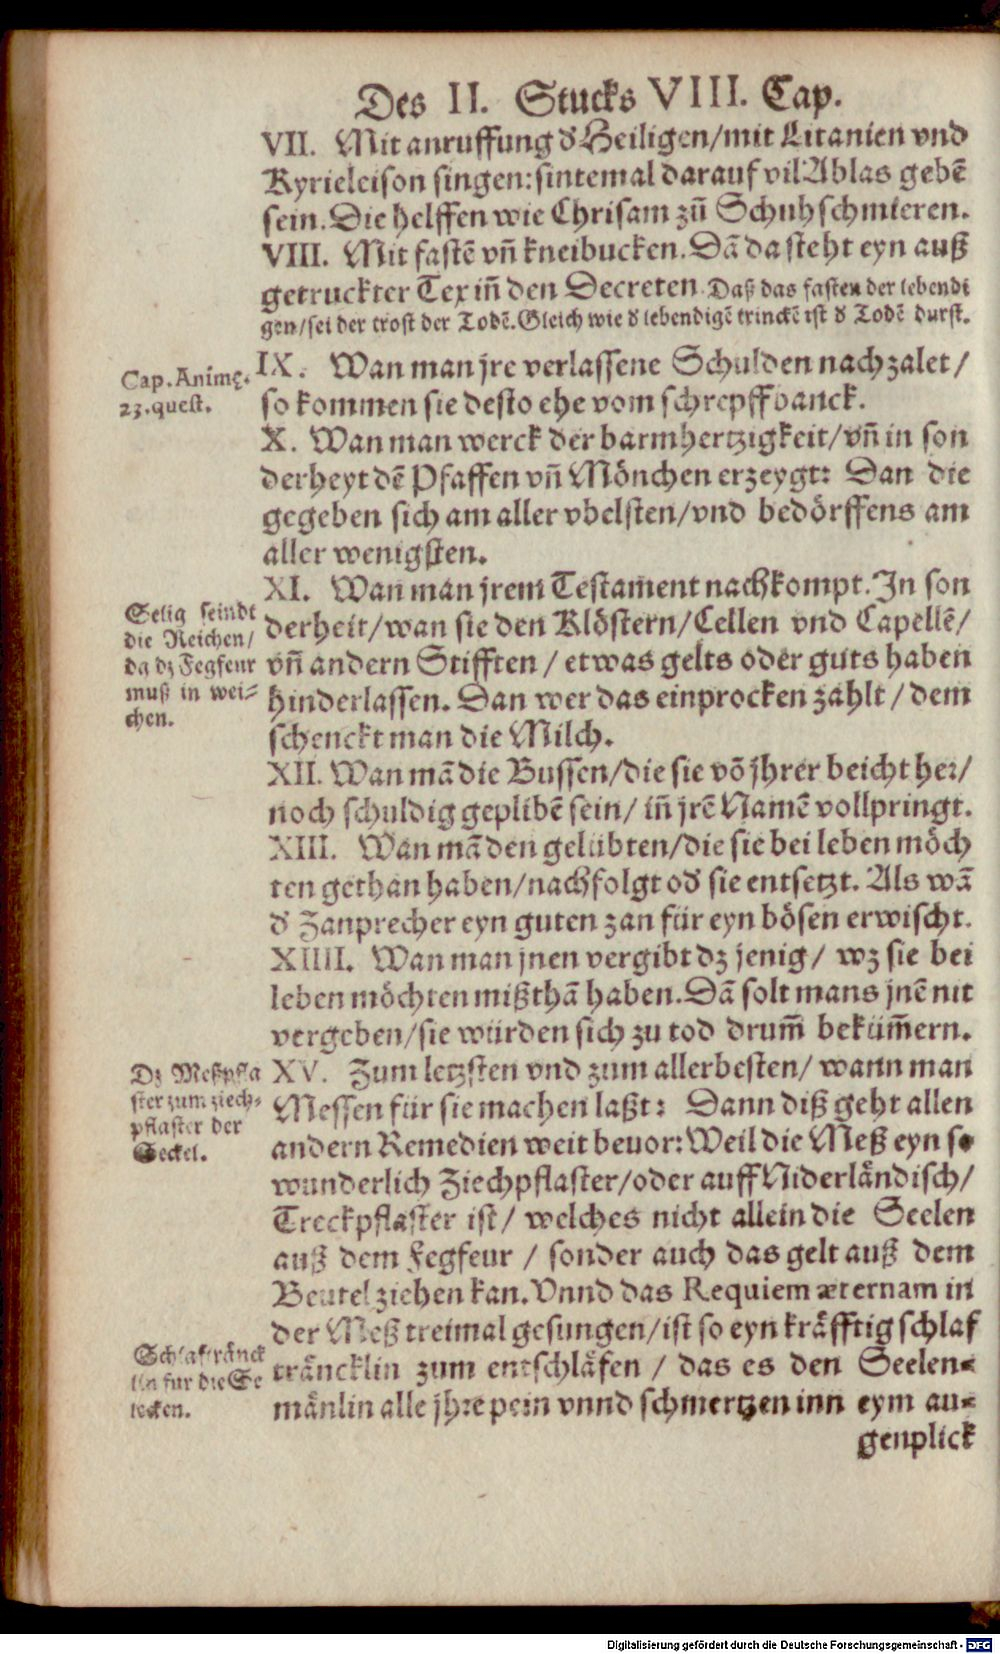 Des II. Stucks VIII. Cap.
VII. Mit anruffung d̕ Heiligen/mit Litanien vnd
Kyrieleison singen: sintemal darauf vil Ablas gebē
sein. Die helffen wie Chrisam zū Schuhschmieren.
VIII. Mit fastē vn̄ kneibucken. Dā da steht eyn auß
getruckter Tex in̄ den Decreten. Daß das fasten der lebendi
gen/sei der trost der Todē. Gleich wie d̕ lebendigē trinckē ist d̕ Todē durst.
Cap. Animę.
23. quest.
IX. Wan man jre verlassene Schulden nachzalet/
so kommen sie desto ehe vom schrepffbanck.
X. Wan man werck der barmhertzigkeit/vn̄ in son
derheyt dē Pfaffen vn̄ Mönchen erzeygt: Dan die
gegeben sich am aller vbelsten/vnd bedörffens am
aller wenigsten.
XI. Wan man jrem Testament nachkompt. In son
derheit/wan sie den Klöstern/Cellen vnd Capellē/
vn̄ andern Stifften/etwas gelts oder guts haben
hinderlassen. Dan wer das einprocken zahlt/dem
schenckt man die Milch.
Selig seindt
die Reichen/
da dz Fegfeur
muß in wei-
chen.
XII. Wan mā die Bussen/die sie vō jhrer beicht her/
noch schuldig geplibē sein/in̄ jrē Namē vollpringt.
XIII. Wan mā den gelübten/die sie bei leben möch
ten gethan haben/nachfolgt od̕ sie entsetzt. Als wā
d̕ Zanprecher eyn guten zan für eyn bösen erwischt.
XIIII. Wan man jnen vergibt dz jenig/ wz sie bei
leben möchten mißthā haben. Dā solt mans jnē nit
vergeben/sie würden sich zu tod drum̄ beküm̄ern.
XV. Zum letzsten vnd zum allerbesten/ wann man
Messen für sie machen laßt: Dann diß geht allen
andern Remedien weit beuor: Weil die Meß eyn so
wunderlich Ziechpflaster/oder auff Niderländisch/
Treckpflaster ist/ welches nicht allein die Seelen
auß dem Fegfeur / sonder auch das gelt auß dem
Beutel ziehen kan. Vnnd das Requiem æternam in
der Meß treimal gesungen/ist so eyn kräfftig schlaf
träncklin zum entschläfen / das es den Seelen-
mänlin alle jhre pein vnnd schmertzen inn eym au-
Dz Meßpfla
ster zum ziech-
pflaster der
Seckel.
Schlaftränck
lin fur die Se
lecken.
genplick
Digitalisierung gefördert durch die Deutsche Forschungsgemeinschaft - DFG